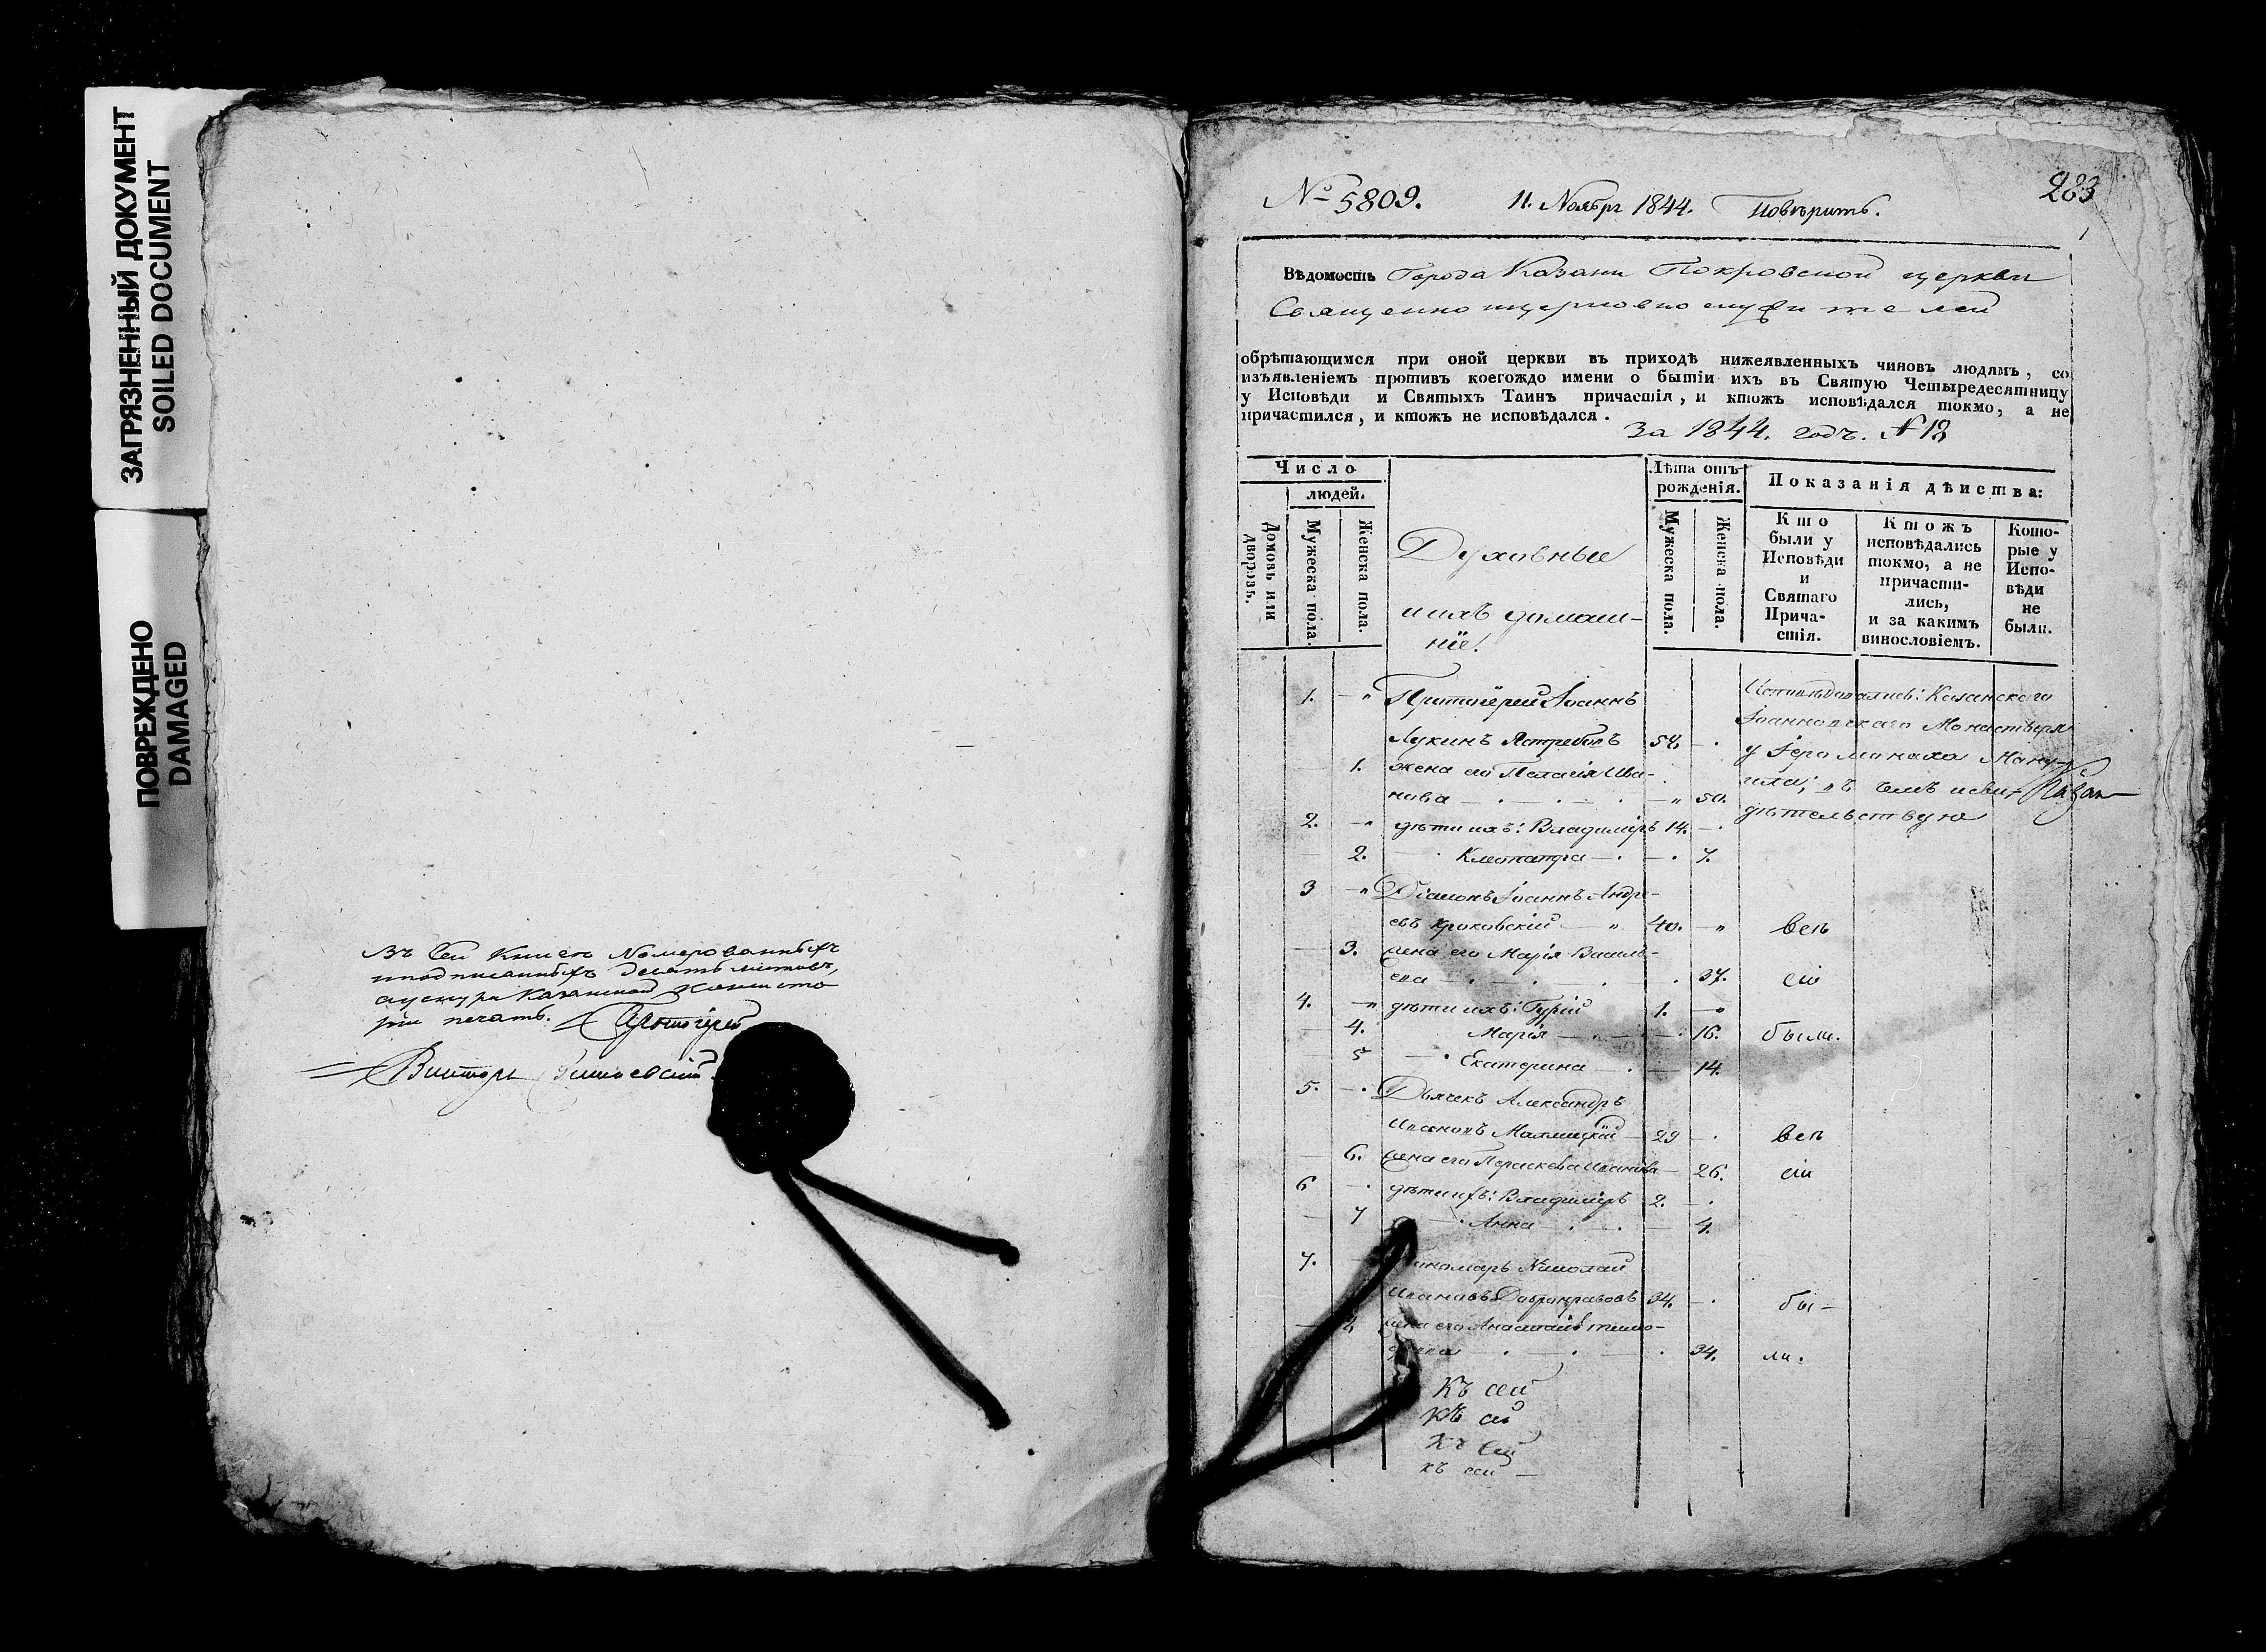 ЗАГРЯЗНЕННЫЙ ДОКУМЕНТ
SOILED DOCUMENT
ПОВРЕЖДЕНО
DAMAGED
Въ сей книге номерованныхъ
и подписанныхъ десять листовъ,
а у снура Казанской Консисто
ріи печать. Протоіерей
Викторъ
№ 5809. 11. Ноябрь 1844. Повѣрить.
283
1
Вѣдомость Города Казани Покровской церкви
Священно церковно служителей
обрѣтающимся при оной церкви въ приходѣ нижеявленныхъ чиновъ людямъ, со
изъявленіемъ противъ коегождо имени о бытіи ихъ въ Святую Четыредесятницу
у Исповѣди и Святыхъ Таинъ причастія, и ктожъ исповѣдался токмо, а не
причастился, и ктожъ не исповѣдался.
За 1844. годъ. № 18
Число
людей.
Домовъ или дворовъ.
Мужеска пола.
Женска пола.
Духовные
и ихъ домаш-
ніе.
Лѣта отъ
рожденія.
Мужеска пола.
Женска пола.
Показанія дѣиства:
Кто
были у
Исповѣди
и
Святаго
Прича-
стія.
Ктожъ
исповѣдались
токмо, а не
причасти-
лись,
и за какимъ
винословіемъ.
Кото-
рые у
Испо-
вѣди
не
были.
1. — " Протоіерей Іоаннъ
Лукинъ Ястребовъ 54. — .
Исповѣдовались: Казанскаго
Іоанновскаго Монастыря
у Іеромонаха
въ чемъ и сви-
дѣтельствую
— 1. жена его Пелагія Ива-
нова — " 50.
2. — " дѣти ихъ: Владиміръ 14. — .
— 2. Клеопатра — . 7.
3 — " Діаконъ Іоаннъ Андре-
евъ Кроковскій — " 40. — " всѣ
— 3. жена его Марія Василь-
ева — . 37. сіи
4. — " дѣти ихъ: Гурій 1. — "
— 4. Марія — . 16. были.
5 — . Екатерина — . — 14.
5. — . Дьячекъ Александръ
Ивановъ 29 — . всѣ
— 6. жена его Параскева Иванова — 26. сіи
6 — . дѣти ихъ: Владиміръ 2. — .
— 7 — . Анна — . 4.
7. — Пономарь Николай
Ивановъ Добронравовъ 34. — . бы-
жена его Анастасія Тимо-
— . 34. ли.
Къ сей
Къ сей
Къ сей
къ сей —